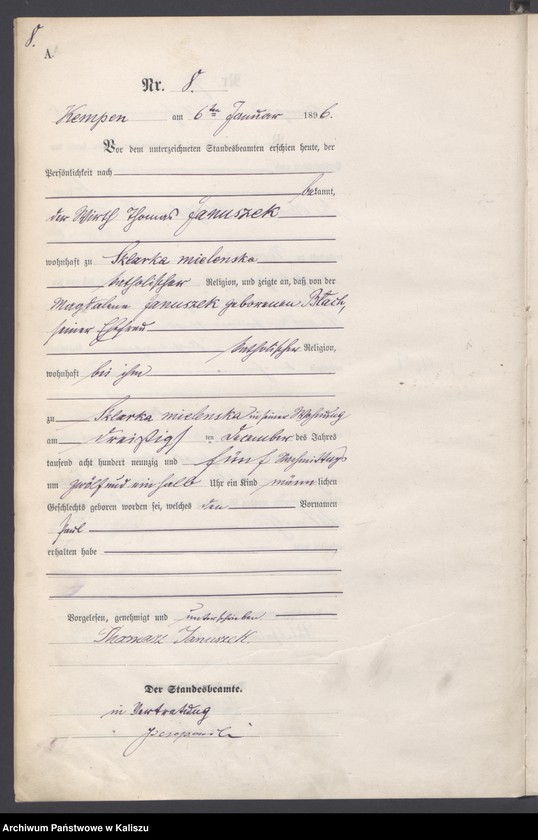 8.
A.
Nr. 8.
Kempen am 6ten Januar 1896.
Vor dem unterzeichneten Standesbeamten erschien heute, der
Persönlichkeit nach
bekannt,
der Wirth Thomas Januszek
wohnhaft zu Sklarka mielenska
katholischer Religion, und zeigte an, daß von der
Magdalena Januszek geborenen Blach,
seiner Ehefrau
katholischer Religion,
wohnhaft bei ihm
zu Sklarka mielenska in seiner Wohnung
am dreißigsten December des Jahres
tausend acht hundert neunzig und fünf Nachmittags
um zwölf und ein halb Uhr ein Kind männlichen
Geschlechts geboren worden sei, welches den Vornamen
Paul
erhalten habe
Vorgelesen, genehmigt und unterschrieben
Thomasz Januszek.
Der Standesbeamte.
in Vertretung
Archiwum Państwowe w Kaliszu